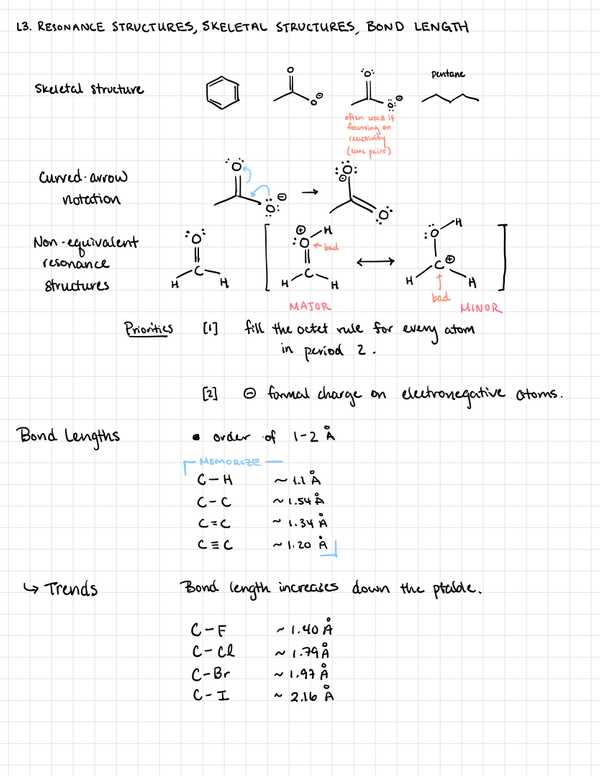 L3. RESONANCE STRUCTURES, SKELETAL STRUCTURES, BOND LENGTH
Skeletal structure
O
O ⊖
:O:
:O: ⊖
pentane
often used if
focusing on
reactivity
(lone pairs)
Curved-arrow
notation
:O:
:O: ⊖
→
:O: ⊖
O:
Non-equivalent
resonance
structures
:O:
C
H H
⊕ H
:O
← bad
C
H H
MAJOR
↔
H
:O:
C ⊕
H H
↑
bad
MINOR
Priorities [1] fill the octet rule for every atom
in period 2.
[2] ⊖ formal charge on electronegative atoms.
Bond Lengths • order of 1-2 Å
MEMORIZE
C-H ~ 1.1 Å
C-C ~ 1.54 Å
C=C ~ 1.34 Å
C≡C ~ 1.20 Å
↳ Trends Bond length increases down the ptable.
C-F ~ 1.40 Å
C-Cl ~ 1.79 Å
C-Br ~ 1.97 Å
C-I ~ 2.16 Å